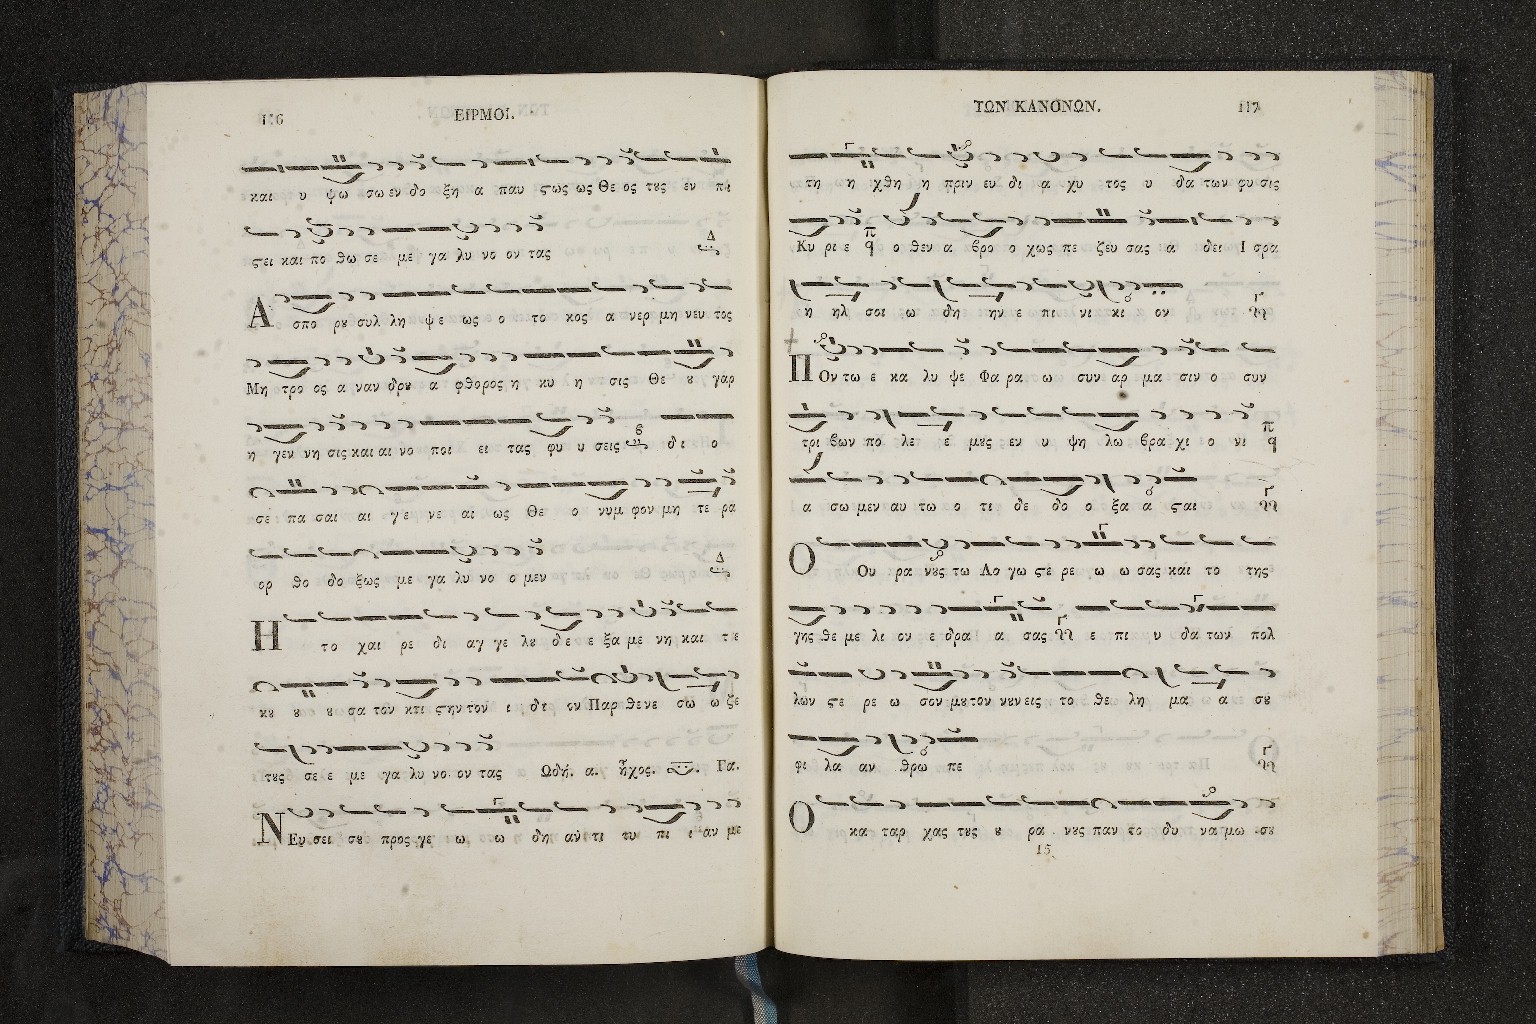 116 ΕΙΡΜΟΙ.
και υ ψω σω εν δο ξη α παυ ϛως ως Θε ος τȣς εν πι
ϛει και πο θω σε με γα λυ νο ον τας Δ
Α σπο ρȣ συλ λη ψε ως ο το κος α νερ μη νευ τος
Μη τρο ος α ναν δρȣ α φθορος η κυ η σις Θε ȣ γαρ
η γεν νη σις και αι νο ποι ει τας φυ υ σεις δι ο
σε πα σαι αι γε νε αι ως Θε ο νυμ φον μη τε ρα
ορ θο δο ξως με γα λυ νο ο μεν Δ
Η το χαι ρε δι αγ γε λȣ δε ε ξα με νη και τε
κȣ ȣ ȣ σα τον κτι ϛην τον ι δι ον Παρ θενε σω ω ζε
τȣς σε ε με γα λυ νο ον τας Ωδή. α. ἦχος. Γα.
Ν Ευ σει σȣ προς γε ω ω δη αν τι τυ πι ι αν με
ΤΩΝ ΚΑΝΟΝΩΝ. 117
τη η χθη η πριν ευ δι α χυ τος υ δα των φυ σις
Κυ ρι ε ο θεν α βρο ο χως πε ζευ σας α δει Ι σρα
η ηλ σοι ω δη ην ε πι νι κι ον
Π Ον τω ε κα λυ ψε Φα ρα ω συν αρ μα σιν ο συν
τρι βων πο λε ε μȣς εν υ ψη λω βρα χι ο νι
α σω μεν αυ τω ο τι δε δο ο ξα α ϛαι
Ο Ου ρα νȣς τω Λο γω ϛε ρε ω ω σας και το της
γης θε με λι ον ε δρα α σας ε πι υ δα των πολ
λων ϛε ρε ω σον μȣ τον νȣν εις το θε λη μα α σȣ
φι λα αν θρω πε
Ο κα ταρ χας τȣς ȣ ρα νȣς παν το δυ να μω σȣ
15